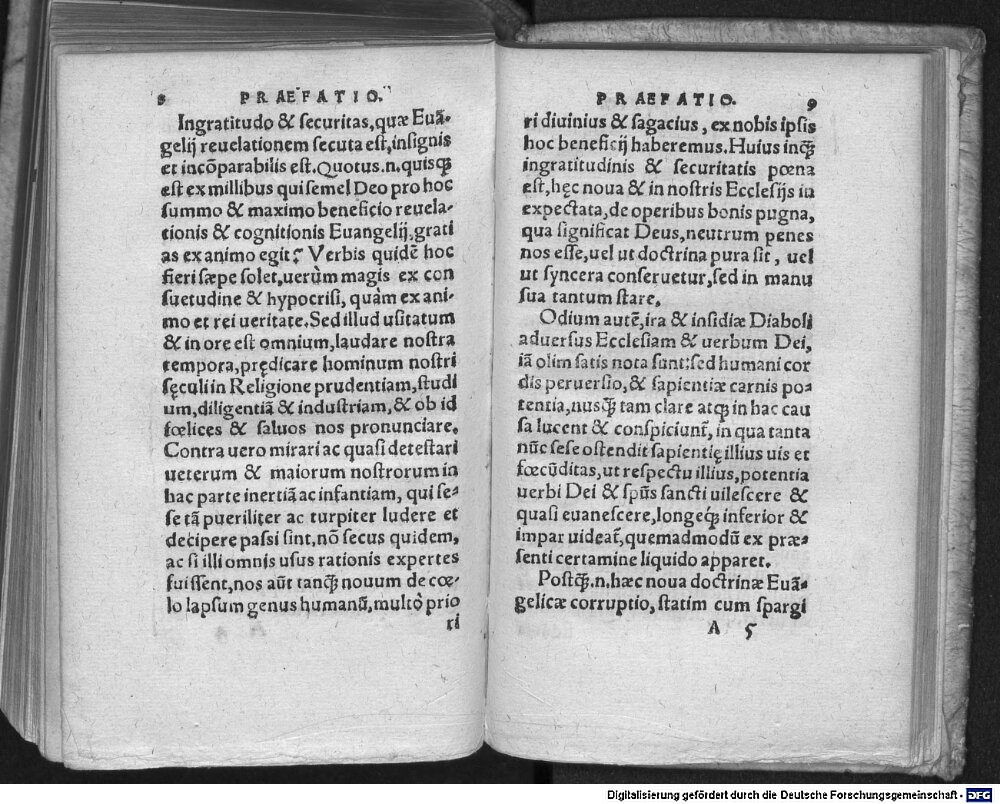 8 PRAEFATIO.
Ingratitudo & securitas, quæ Euã-
gelij reuelationem secuta est, insignis
et incõparabilis est. Quotus.n. quisqꝫ
est ex millibus qui semel Deo pro hoc
summo & maximo beneficio reuela-
tionis & cognitionis Euangelij, grati
as ex animo egit? Verbis quidẽ hoc
fieri sæpe solet, uerùm magis ex con
suetudine & hypocrisi, quàm ex ani-
mo et rei ueritate. Sed illud usitatum
& in ore est omnium, laudare nostra
tempora, prędicare hominum nostri
sęculi in Religione prudentiam, studi
um, diligentiã & industriam, & ob id
fœlices & saluos nos pronunciare.
Contra uero mirari ac quasi detestari
ueterum & maiorum nostrorum in
hac parte inertiã ac infantiam, qui se-
se tã pueriliter ac turpiter ludere et
decipere passi sint, nõ secus quidem,
ac si illi omnis usus rationis expertes
fuissent, nos aũt tanqꝫ nouum de cœ-
lo lapsum genus humanũ, multò prio
ri
PRAEFATIO. 9
ri diuinius & sagacius, ex nobis ipsis
hoc beneficij haberemus. Huius inqꝫ
ingratitudinis & securitatis pœna
est, hęc noua & in nostris Ecclesijs in
expectata, de operibus bonis pugna,
qua significat Deus, neutrum penes
nos esse, uel ut doctrina pura sit, uel
ut syncera conseruetur, sed in manu
sua tantum stare.
Odium autẽ, ira & insidiæ Diaboli
aduersus Ecclesiam & uerbum Dei,
iã olim satis nota sunt: sed humani cor
dis peruersio, & sapientiæ carnis po-
tentia, nusqꝫ tam clare atqꝫ in hac cau
sa lucent & conspiciunt̃, in qua tanta
nũc sese ostendit sapientię illius uis et
fœcũditas, ut respectu illius, potentia
uerbi Dei & spũs sancti uilescere &
quasi euanescere, longeqꝫ inferior &
impar uideat̃, quemadmodũ ex præ-
senti certamine liquido apparet.
Postqꝫ.n. hæc noua doctrinæ Euã-
gelicæ corruptio, statim cum spargi
A 5
Digitalisierung gefördert durch die Deutsche Forschungsgemeinschaft - DFG